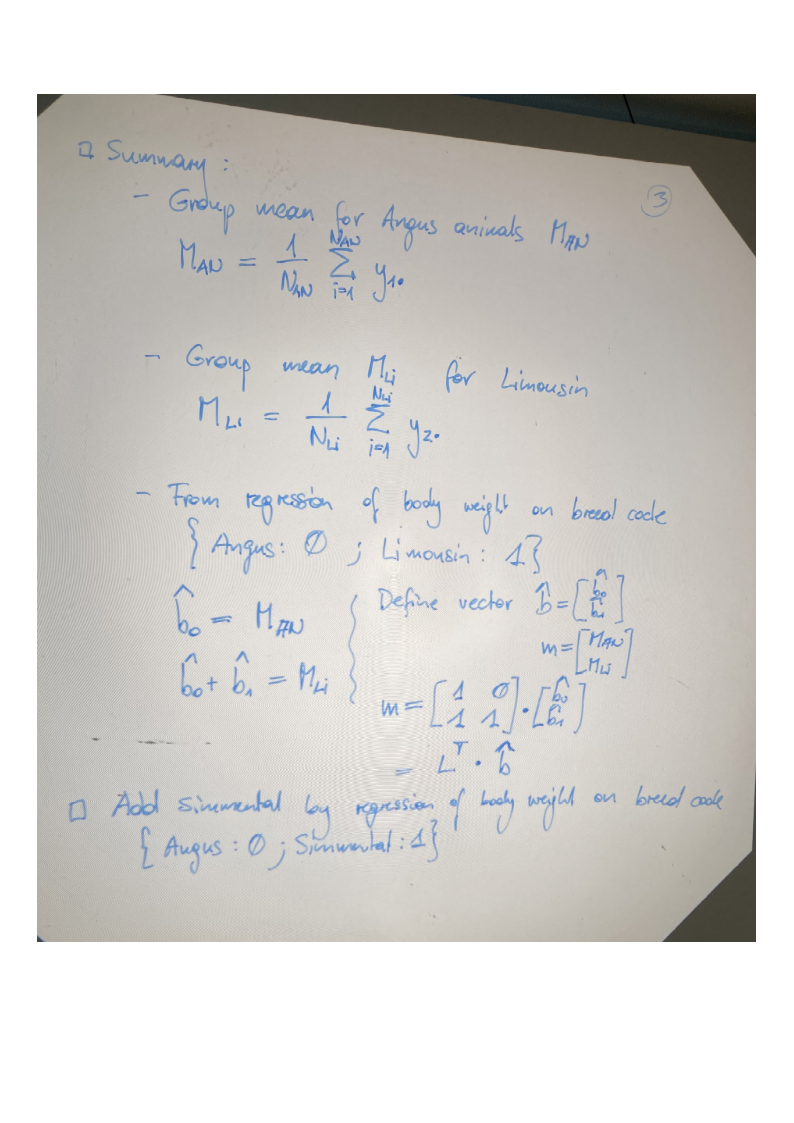 ③
□ Summary :
- Group mean for Angus animals M_AN
M_AN = 1/N_AN ∑_{i=1}^{N_AN} y_1.
- Group mean M_Li for Limousin
M_Li = 1/N_Li ∑_{i=1}^{N_Li} y_2.
- From regression of body weight on breed code
{ Angus: 0 ; Limousin: 1 }
b̂_0 = M_AN
b̂_0 + b̂_1 = M_Li
Define vector b̂ = [b̂_0 b̂_1]
m = [M_AN M_Li]
m = [1 0 1 1] · [b̂_0 b̂_1]
= L^T · b̂
□ Add Simmental by regression of body weight on breed code
{ Angus : 0 ; Simmental : 1 }